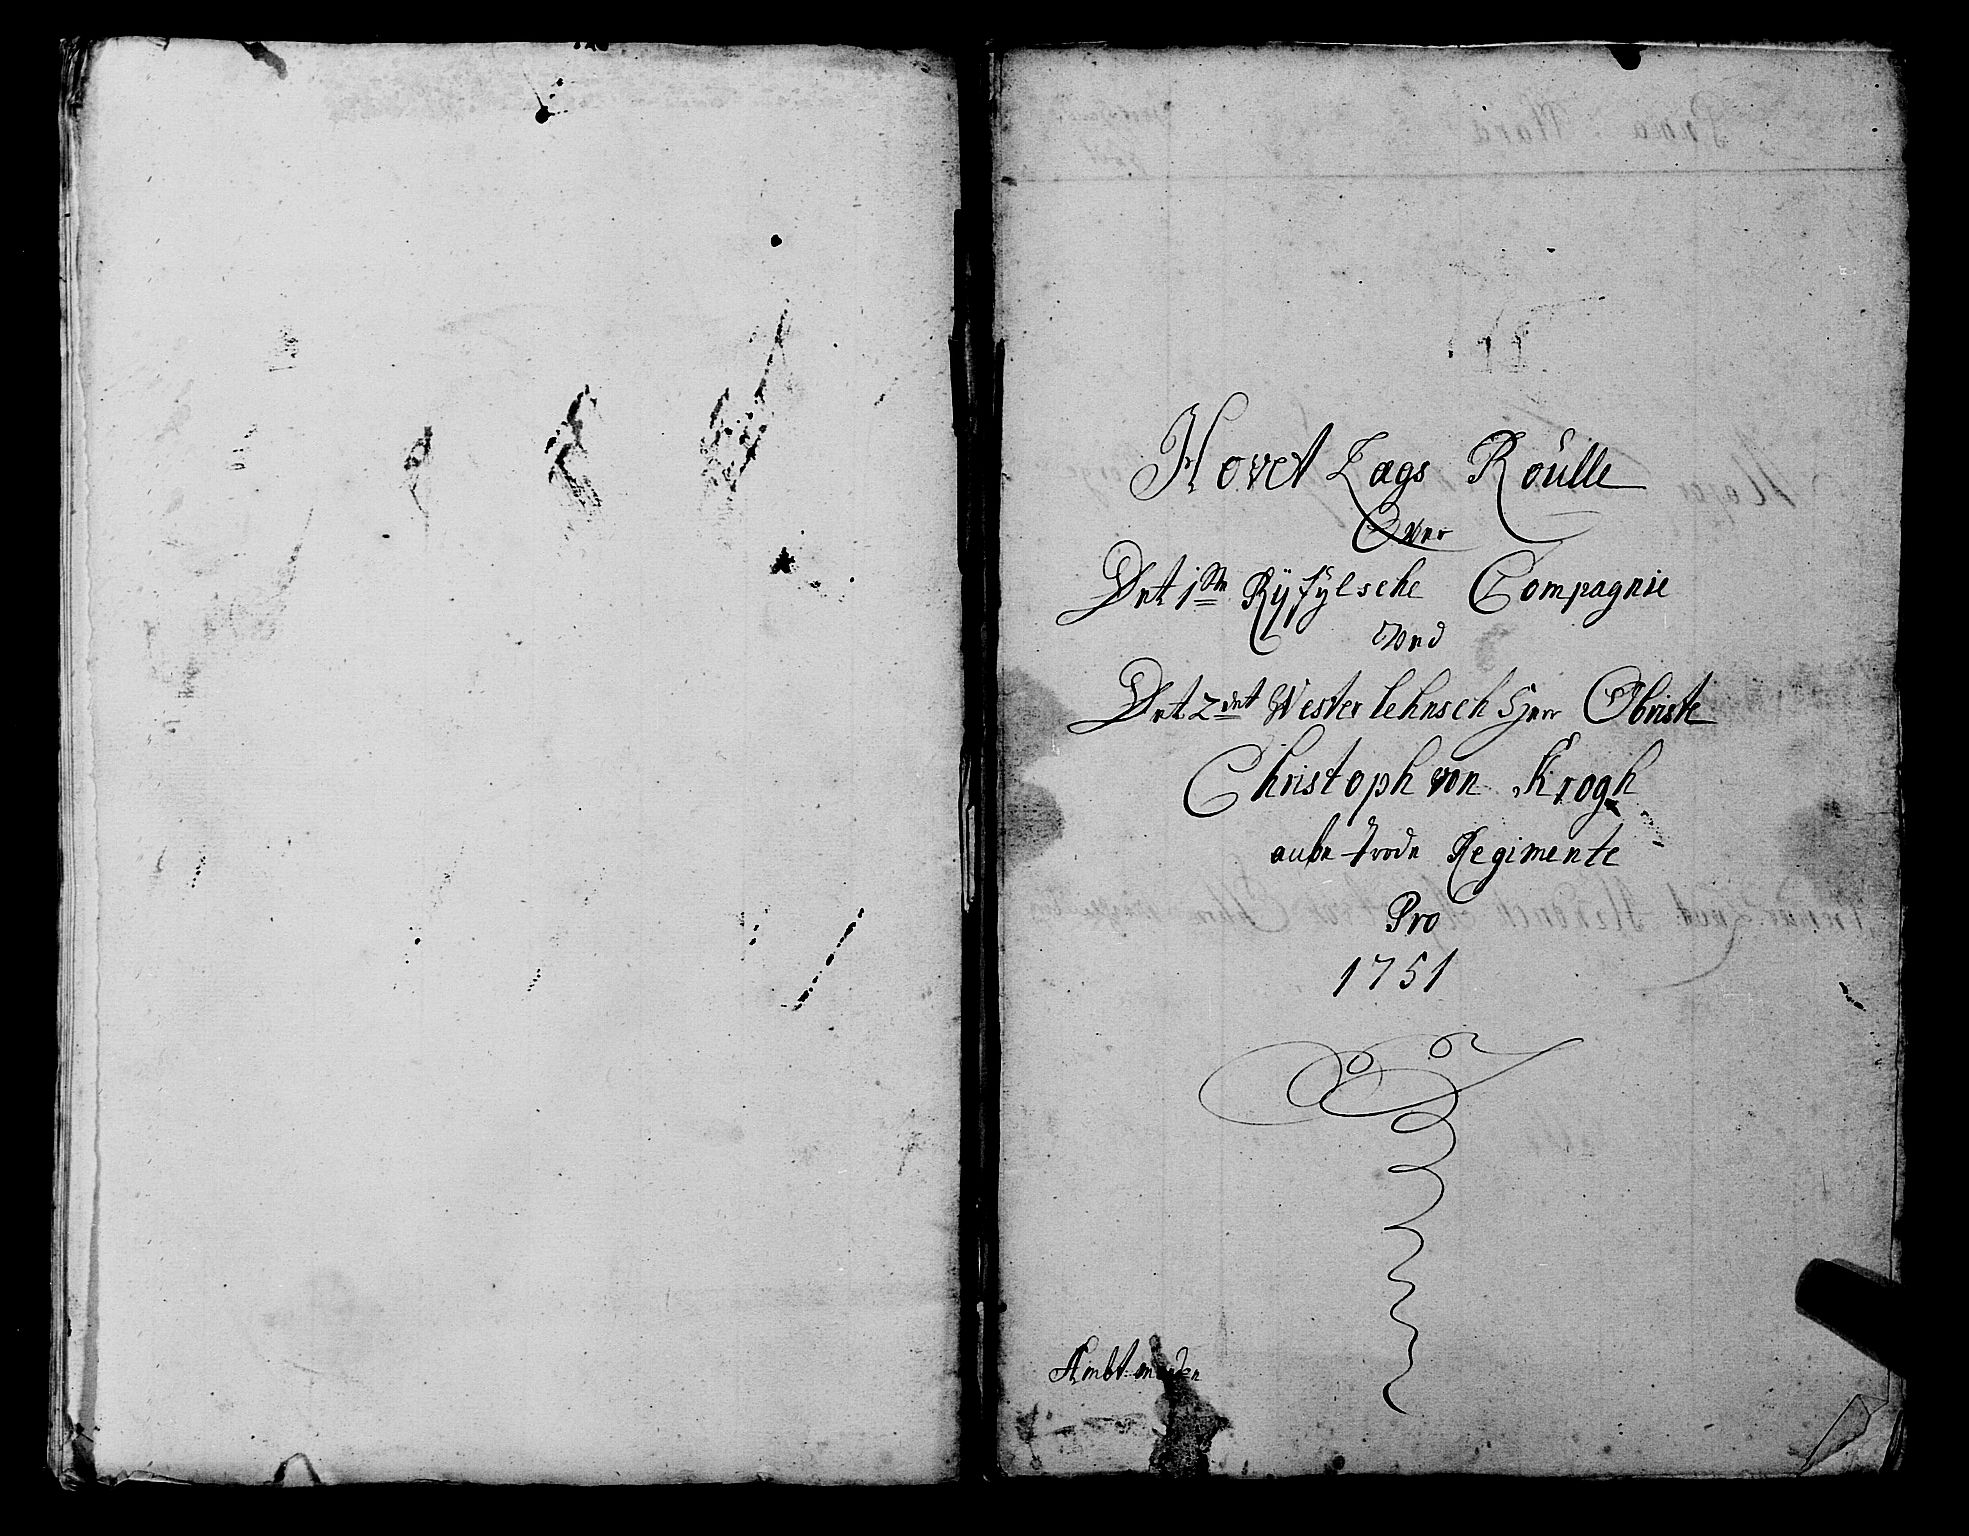 Hovet Lags Roúlle
Over
Det 1ste Ryfylsche Compagnie
Ved
Det 2det Westerlehnsch Herr Obriste
Christoph von Krogh
anbe-trode Regimente
Pro
1751
Ambtmanden